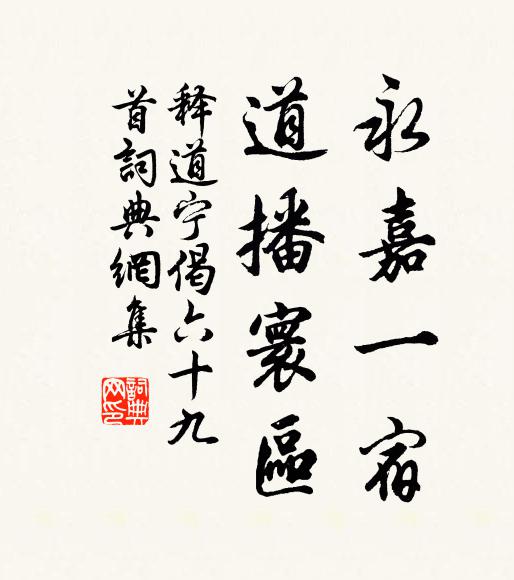 永嘉一宿
道播寰區
释道宁偈六十九
首詞典網集
詞典网印